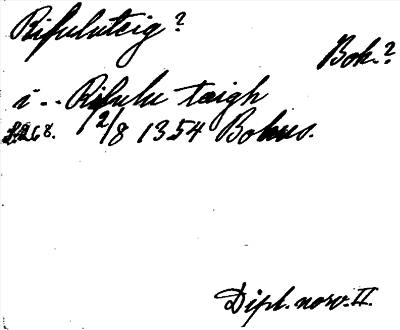 Rifuluteig?
Boh.?
i - - Rifulu tæigh
S. 268. 12/8 1354 Bohus.
Dipl. norv. II.